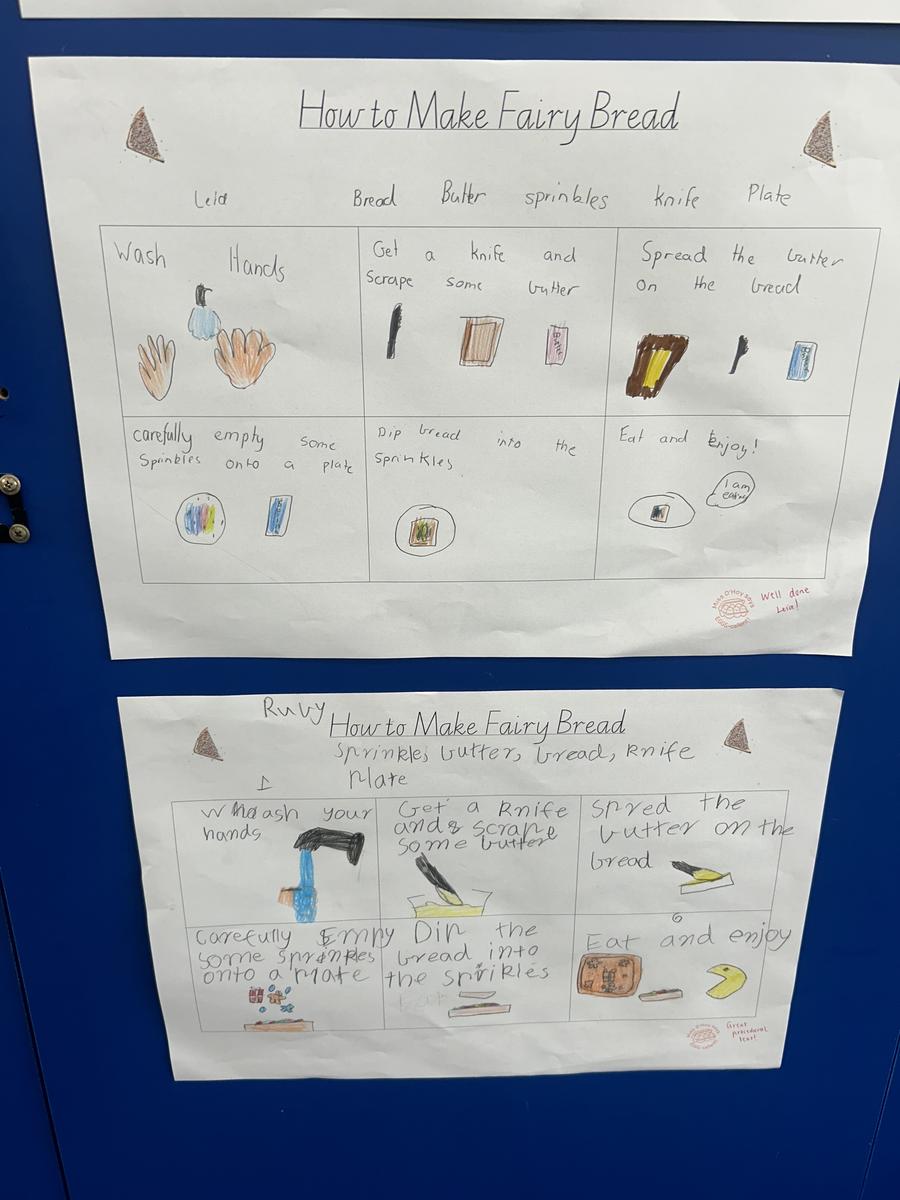 How to Make Fairy Bread
Leia Bread Butter sprinkles knife Plate
Wash Hands
Get a knife and
Scrape some butter
Spread the butter
on the bread
carefully empty some
Sprinkles onto a plate
Dip bread into the
Sprinkles
Eat and Enjoy!
I am
eating
Miss O'Hoy says
Eggs-cellent!
Well done
Leia!
Ruby
How to Make Fairy Bread
Sprinkles, butter, bread, knife
Plate
1
Whash your
hands
Get a Knife
and scrape
some butter
Spred the
butter on the
bread
carefully Empy
some Sprinkles
onto a plate
Dip the
bread into
the sprikles
6
Eat and enjoy
Great
procedural
text!